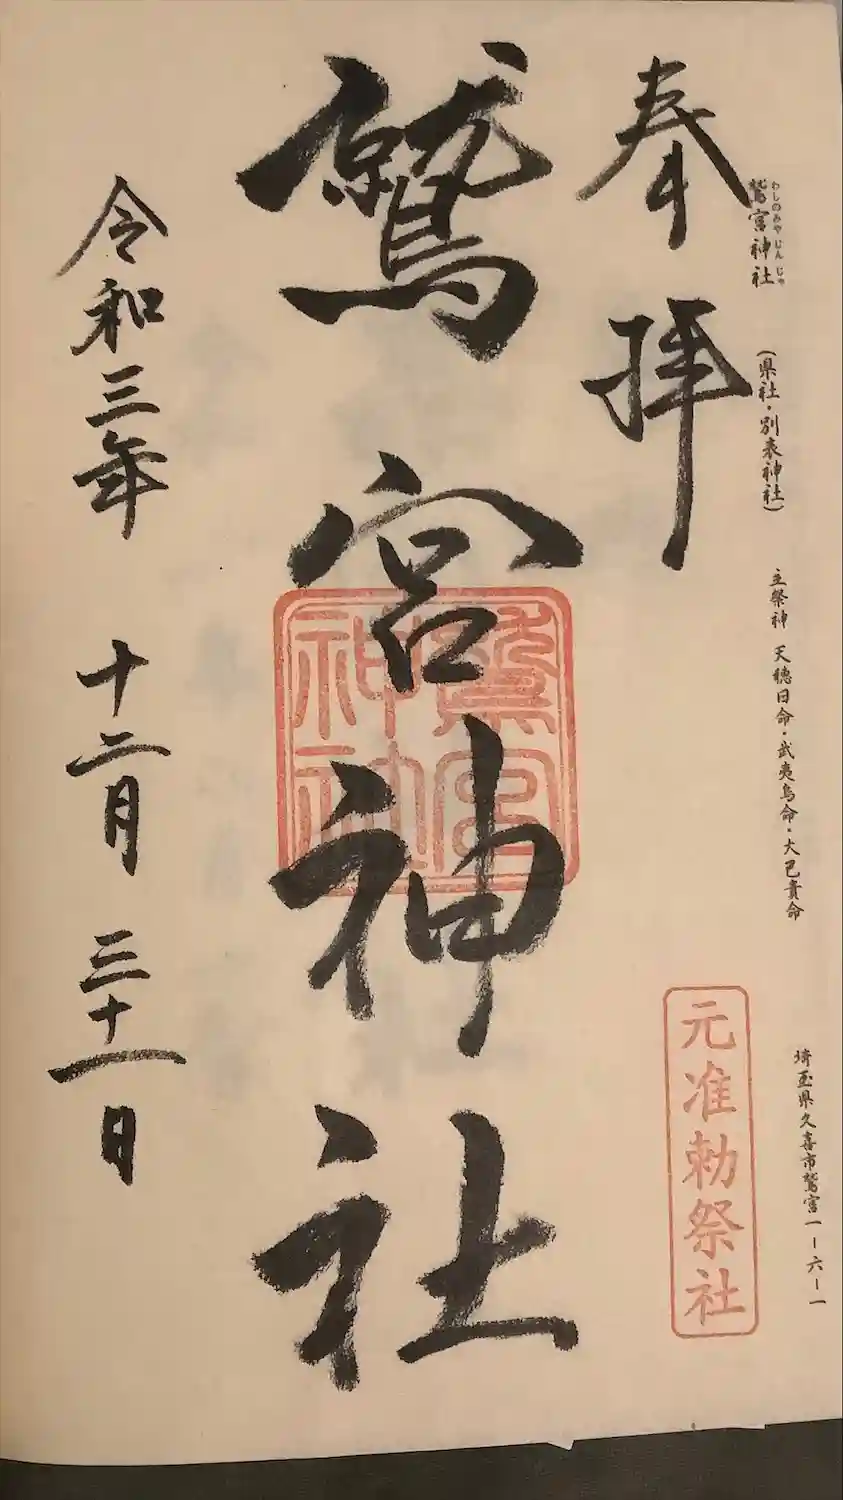 鷲宮神社
わしのみやじんじゃ
(県社・別表神社)
主祭神 天穂日命・武夷鳥命・大己貴命
埼玉県久喜市鷲宮一ー六ー一
奉拝
元准勅祭社
鷲宮神社
鷲宮
神社
令和三年 十二月 三十一日